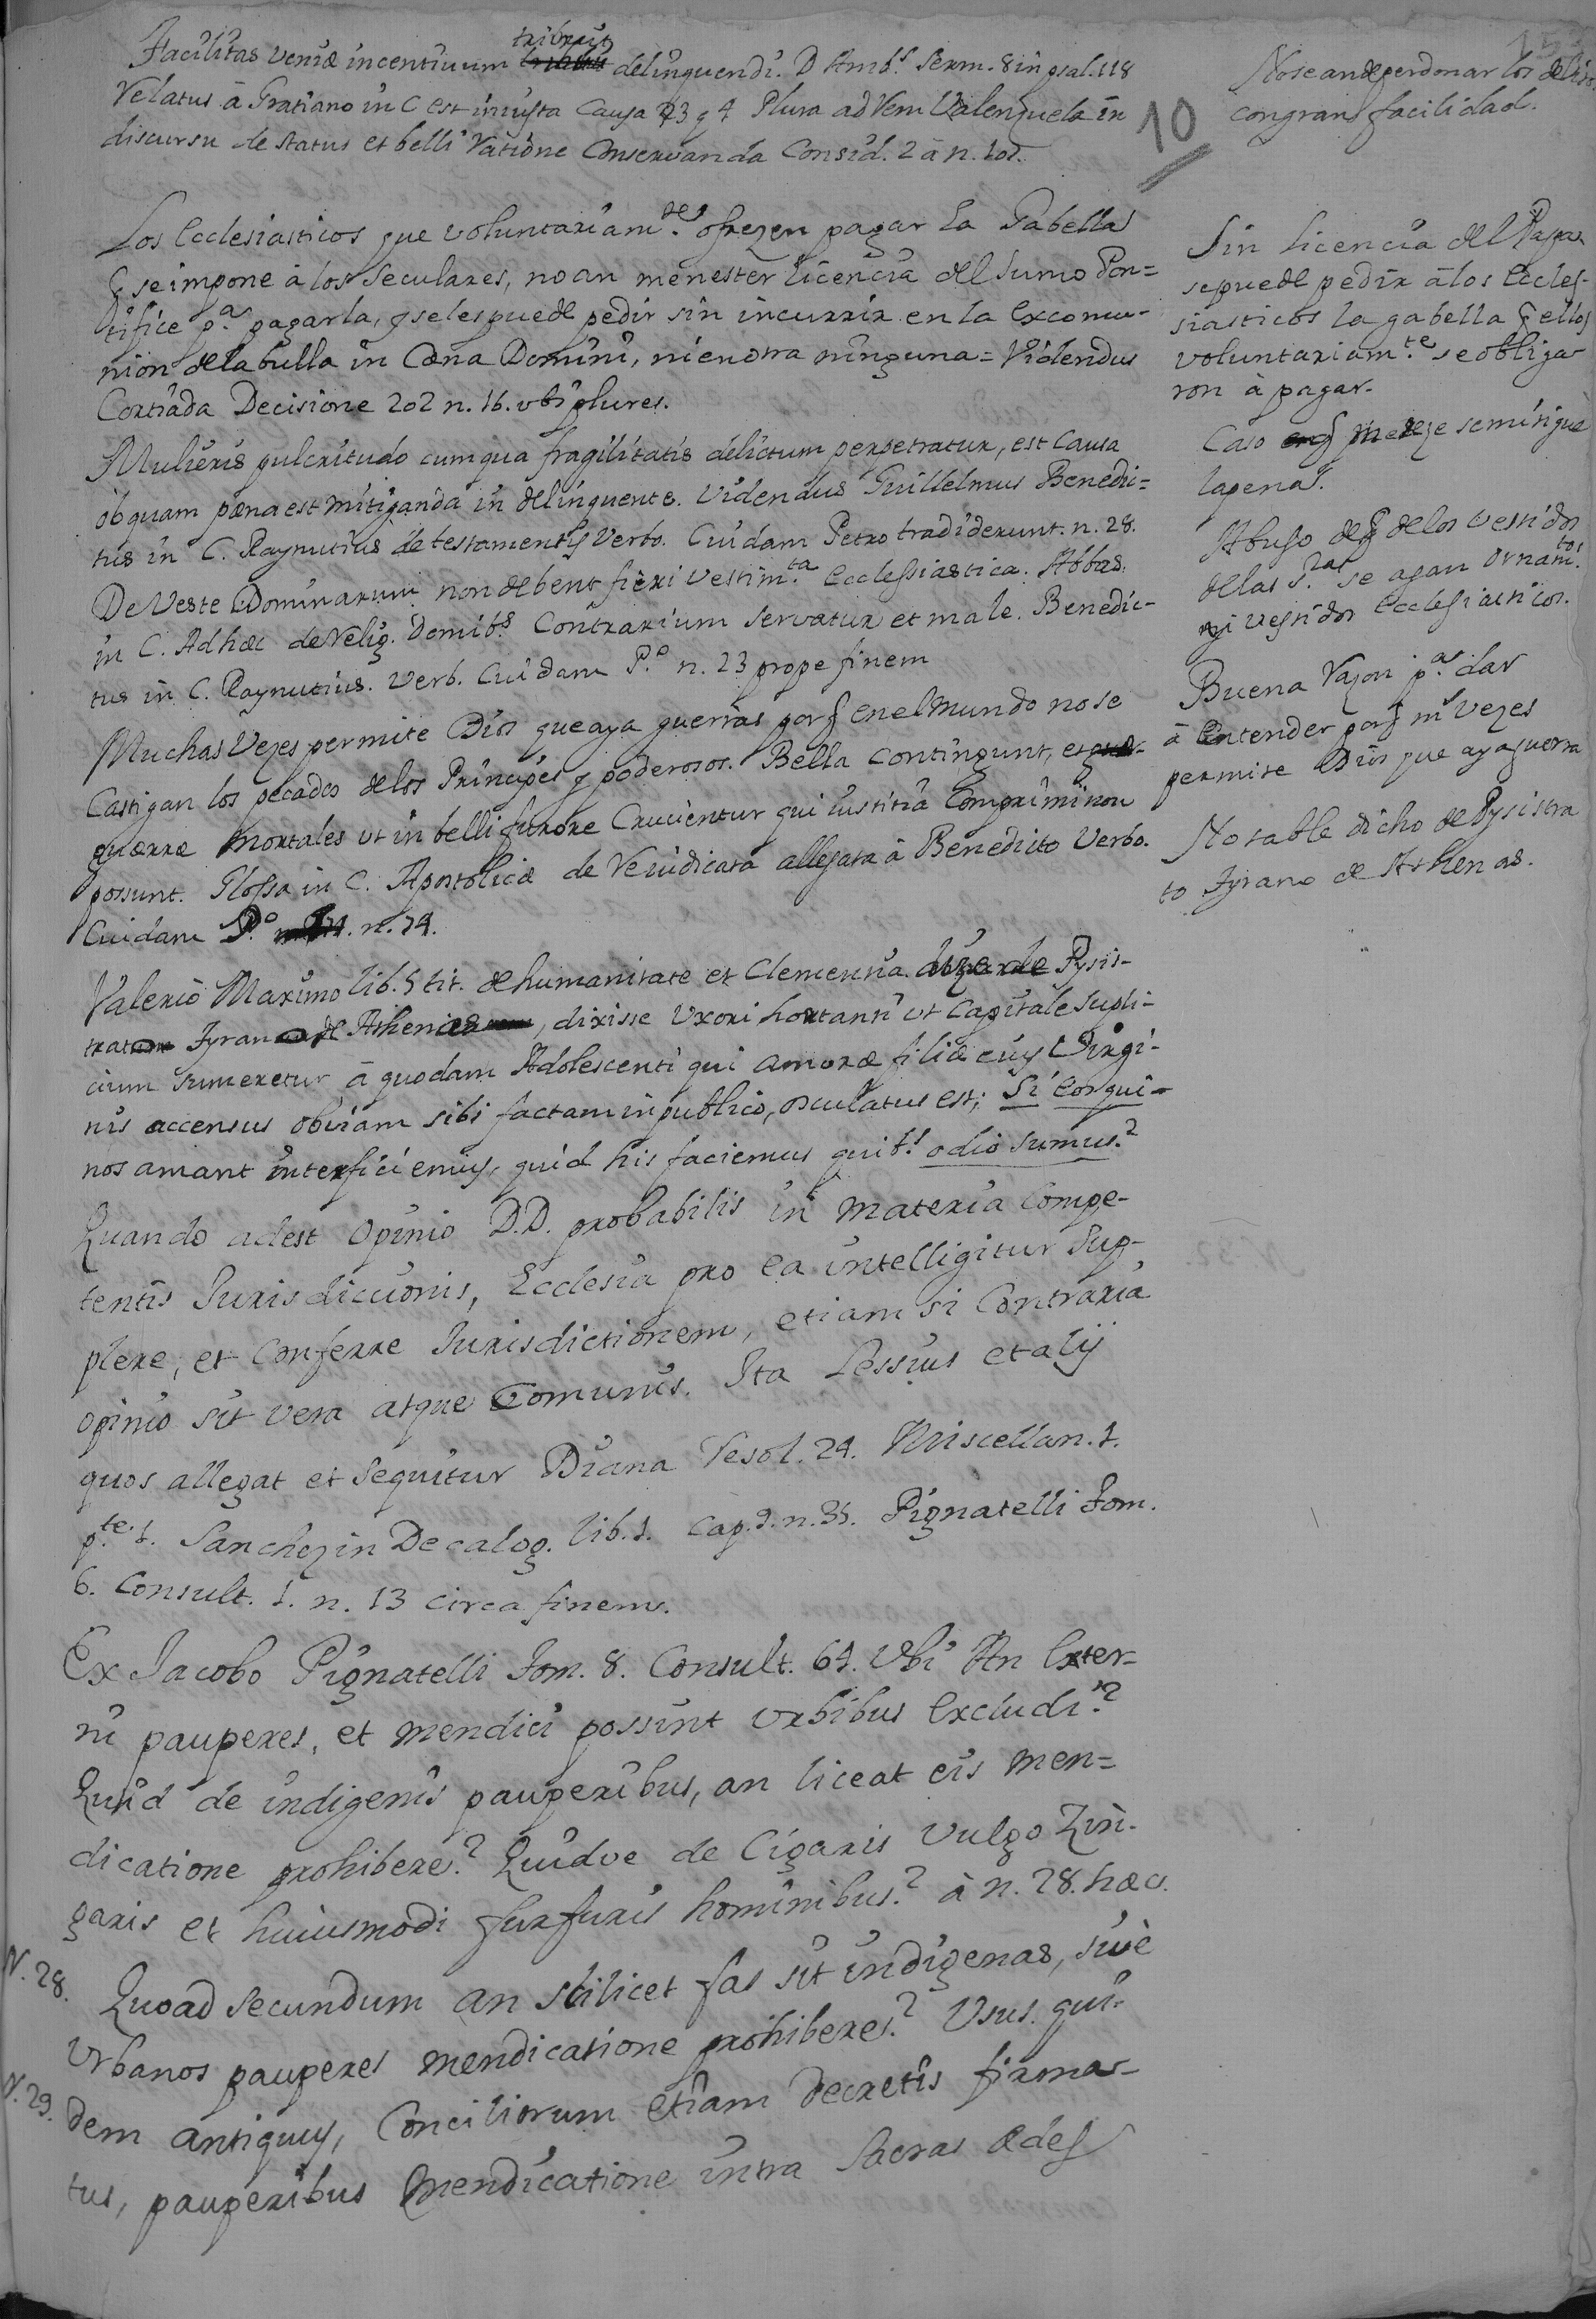 Facilitas veniæ incentiuum tribuit delinquendi. D Amb.s Serm. 8 in psal. 118
Relatus à Gratiano in C est iniusta Causa 23 q 4 Plura ad Rem Valenzuela in
discursu de status et belli Ratione Conservanda Consid. 2 à n. 101.
No se an de perdonar los delitos
con gran facilidad.
10
Los Ecclesiasticos que voluntariam.te ofrezen pagar la Gabella
q se impone à los seculares, no an menester licencia del Sumo Pon=
tifice p.a pagarla, y se les puede pedir sin incurrir en la excomu-
nion de la bulla in Cæna Domini, ni en otra ninguna = Videndus
Cortiada Decisione 202 n. 16. ubi plures.
Sin licencia del Papa
se puede pedir à los Eccles-
siasticos la gabella q ellos
voluntariam.te se obliga-
ron à pagar.
Mulieris pulcritudo cum qua fragilitatis delictum perpetratur, est Causa
ob quam pæna est mitiganda in delinquente. Videndus Guillelmus Benedic=
tus in C. Raynutius de testamentis Verbo. Cuidam Petro tradiderunt. n. 28.
Caso en q mereze se mitigue
la pena.
De Veste Dominarum non debent fieri vestim.ta Ecclessiastica. Abbas.
in C. Ad hæc de Relig. Domib.s Contrarium servatur et male. Benedic-
tus in C. Raynutius. Verb. Cuidam P.o n. 23 prope finem
Abuso de q de los vestidos
de las S.ras se agan ornam.tos
y vestidos Ecclesiasticos.
Muchas Vezes permite Dios que aya guerras porq en el Mundo no se
Castigan los pecados de los Principes y poderosos. Bella Contingunt, et
guerræ mortales ut in belli furore Crucientur qui iustitia Comprimi non
possunt. Glossa in C. Apostolicæ de Re iudicata allegata à Benedicto Verbo.
Cuidam P.o n. 74.
Buena Razon p.a dar
à Entender porq m.s vezes
permite Dios que aya guerra
Valerio Maximo lib. 5 tit. de humanitate et Clementia. Pysis-
trato Tyrano de Athenas, dixisse Uxori hortanti ut Capitale Supli-
cium sumeretur à quodam Adolescenti qui amoræ filiæ eius Virgi-
nis accensus obiiam sibi factam in publico, osculatus est; Si eos qui
nos amant interficiemus, quid his faciemus quib.s odio sumus?
Notable dicho de Pysistra
to Tyrano de Athenas.
Quando adest Opinio D.D. probabilis in materia Compe-
tentis Jurisdictionis, Ecclesia pro ea intelligitur sup-
plere, et Conferre Jurisdictionem, etiam si Contraria
opinio sit vera atque Comunis. Ita Lessius et alij
quos allegat et sequitur Diana Resol. 24. Miscellan. 1.
p.te 1. Sanchez in Decalog. lib. 1. Cap. 9. n. 35. Pignatelli Tom.
6. Consult. 1. n. 13 circa finem.
Ex Jacobo Pignatelli Tom. 8. Consult. 64. Ubi An Exter-
ni pauperes, et mendici possint Urbibus Excludi?
Quid de indigenis pauperibus, an liceat eis men=
dicatione prohibere? Quidve de Cigaris vulgo Zin-
garis et huiusmodi furfuris hominibus? à n. 28. hæc.
N. 28. Quoad secundum an scilicet fas sit indigenas, sivè
Urbanos pauperes mendicatione prohibere? Usus. qui-
N. 29. dem antiquus, Conciliorum etiam Decretis firma-
tus, pauperibus mendicatione intra Sacras ædes